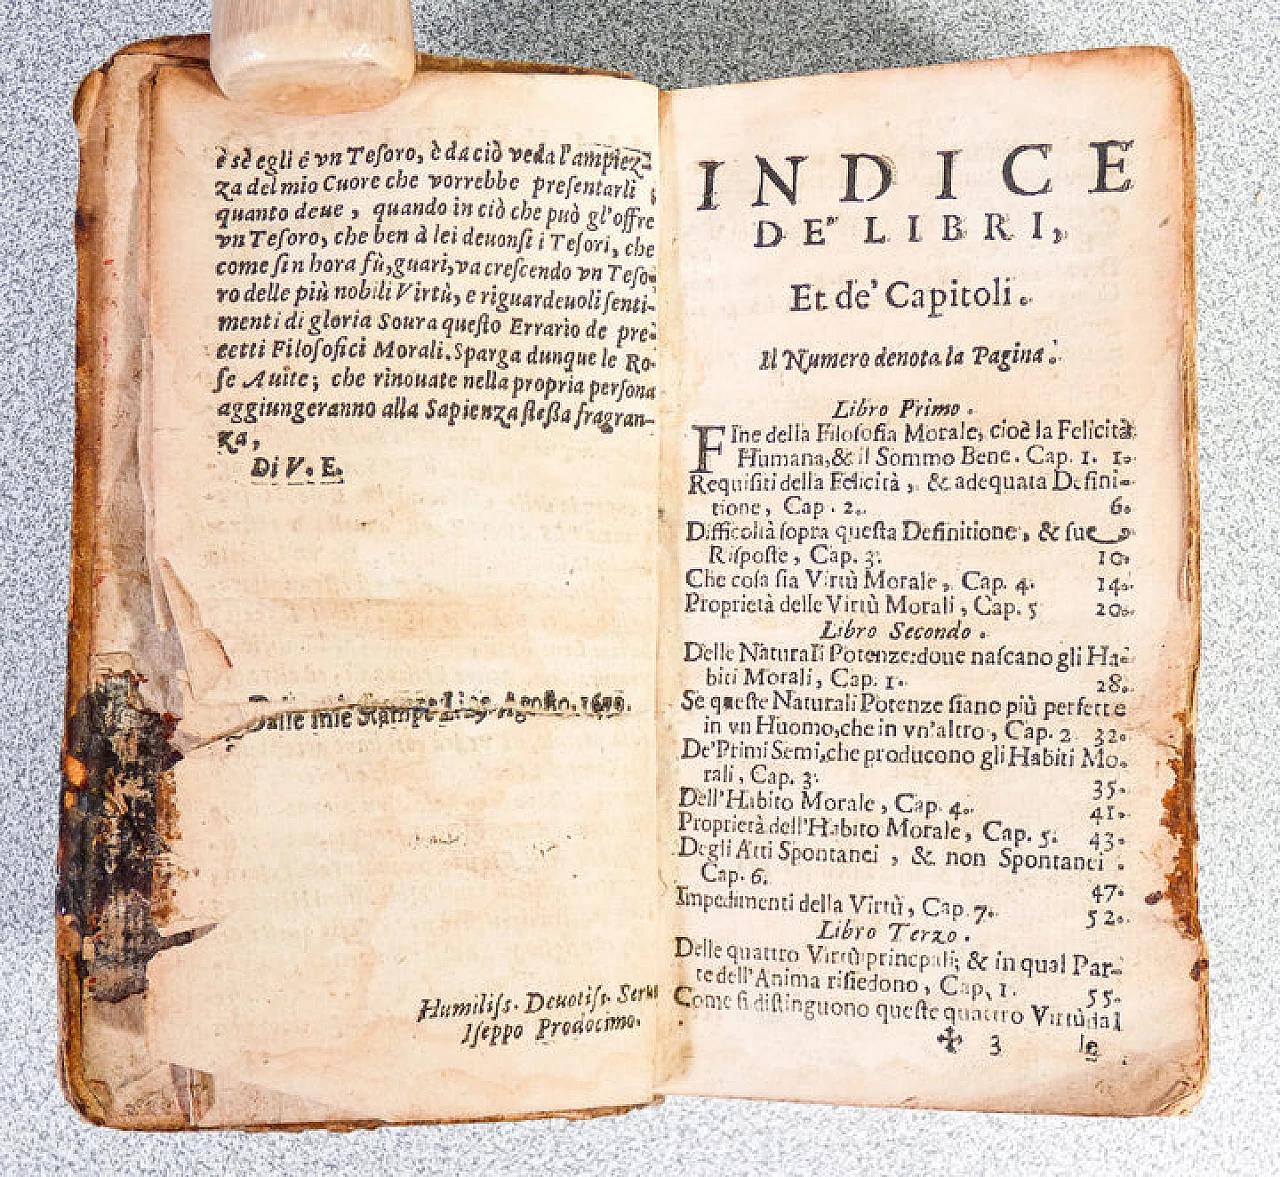 è sè egli è vn Teſoro, è da ciò veda l'ampiez-
za del mio Cuore che vorrebbe preſentarli
quanto deue, quando in ciò che può gl'offre
vn Teſoro, che ben à lei deuonſi i Teſori, che
come ſin hora fù, guari, va creſcendo vn Teſo-
ro delle più nobili Virtù, e riguardeuoli ſenti-
menti di gloria Soura queſto Errario de pre-
cetti Filoſofici Morali. Sparga dunque le Ro-
ſe Auite; che rinouate nella propria perſona
aggiungeranno alla Sapienza ſteſſa fragran-
za,
Di V. E.
Dalle mie Stampe
Humiliſs. Deuotiſs. Seru
Iſeppo Prodocimo.
INDICE
DE' LIBRI,
Et de' Capitoli.
Il Numero denota la Pagina.
Libro Primo.
FIne della Filoſofia Morale, cioè la Felicità
Humana, & il Sommo Bene. Cap. 1. 1.
Requiſiti della Felicità, & adequata Defini-
tione, Cap. 2. 6.
Difficoltà ſopra queſta Definitione, & ſue
Riſpoſte, Cap. 3. 10.
Che coſa ſia Virtù Morale, Cap. 4. 14.
Proprietà delle Virtù Morali, Cap. 5 20.
Libro Secondo.
Delle Naturali Potenze: doue naſcano gli Ha-
biti Morali, Cap. 1. 28.
Se queſte Naturali Potenze ſiano più perfette
in vn Huomo, che in vn'altro, Cap. 2 32.
De' Primi Semi, che producono gli Habiti Mo-
rali, Cap. 3. 35.
Dell'Habito Morale, Cap. 4. 41.
Proprietà dell'Habito Morale, Cap. 5. 43.
Degli Atti Spontanei, & non Spontanei.
Cap. 6. 47.
Impedimenti della Virtù, Cap. 7. 52.
Libro Terzo.
Delle quattro Virtù princpali; & in qual Par-
te dell'Anima riſiedono, Cap. 1. 55.
Come ſi diſtinguono queſte quattro Virtù dal
✠ 3 le